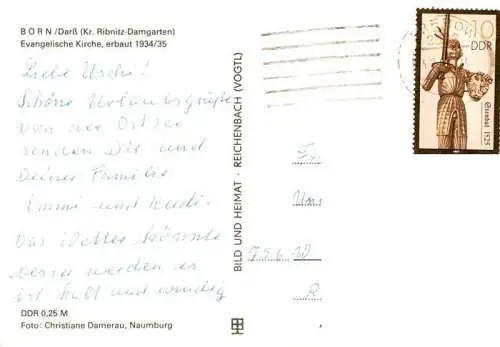 BORN/Darß (Kr. Ribnitz-Damgarten)
Evangelische Kirche, erbaut 1934/35
Liebe Uschi!
Schöne Urlaubsgrüße
von der Ostsee
senden Dir und
Deiner Familie
Emmi und Rudi.
Das Wetter könnte
besser werden es
ist kalt und windig
DDR 0,25 M
Foto: Christiane Damerau, Naumburg
BILD UND HEIMAT · REICHENBACH (VOGTL)
10
DDR
1525